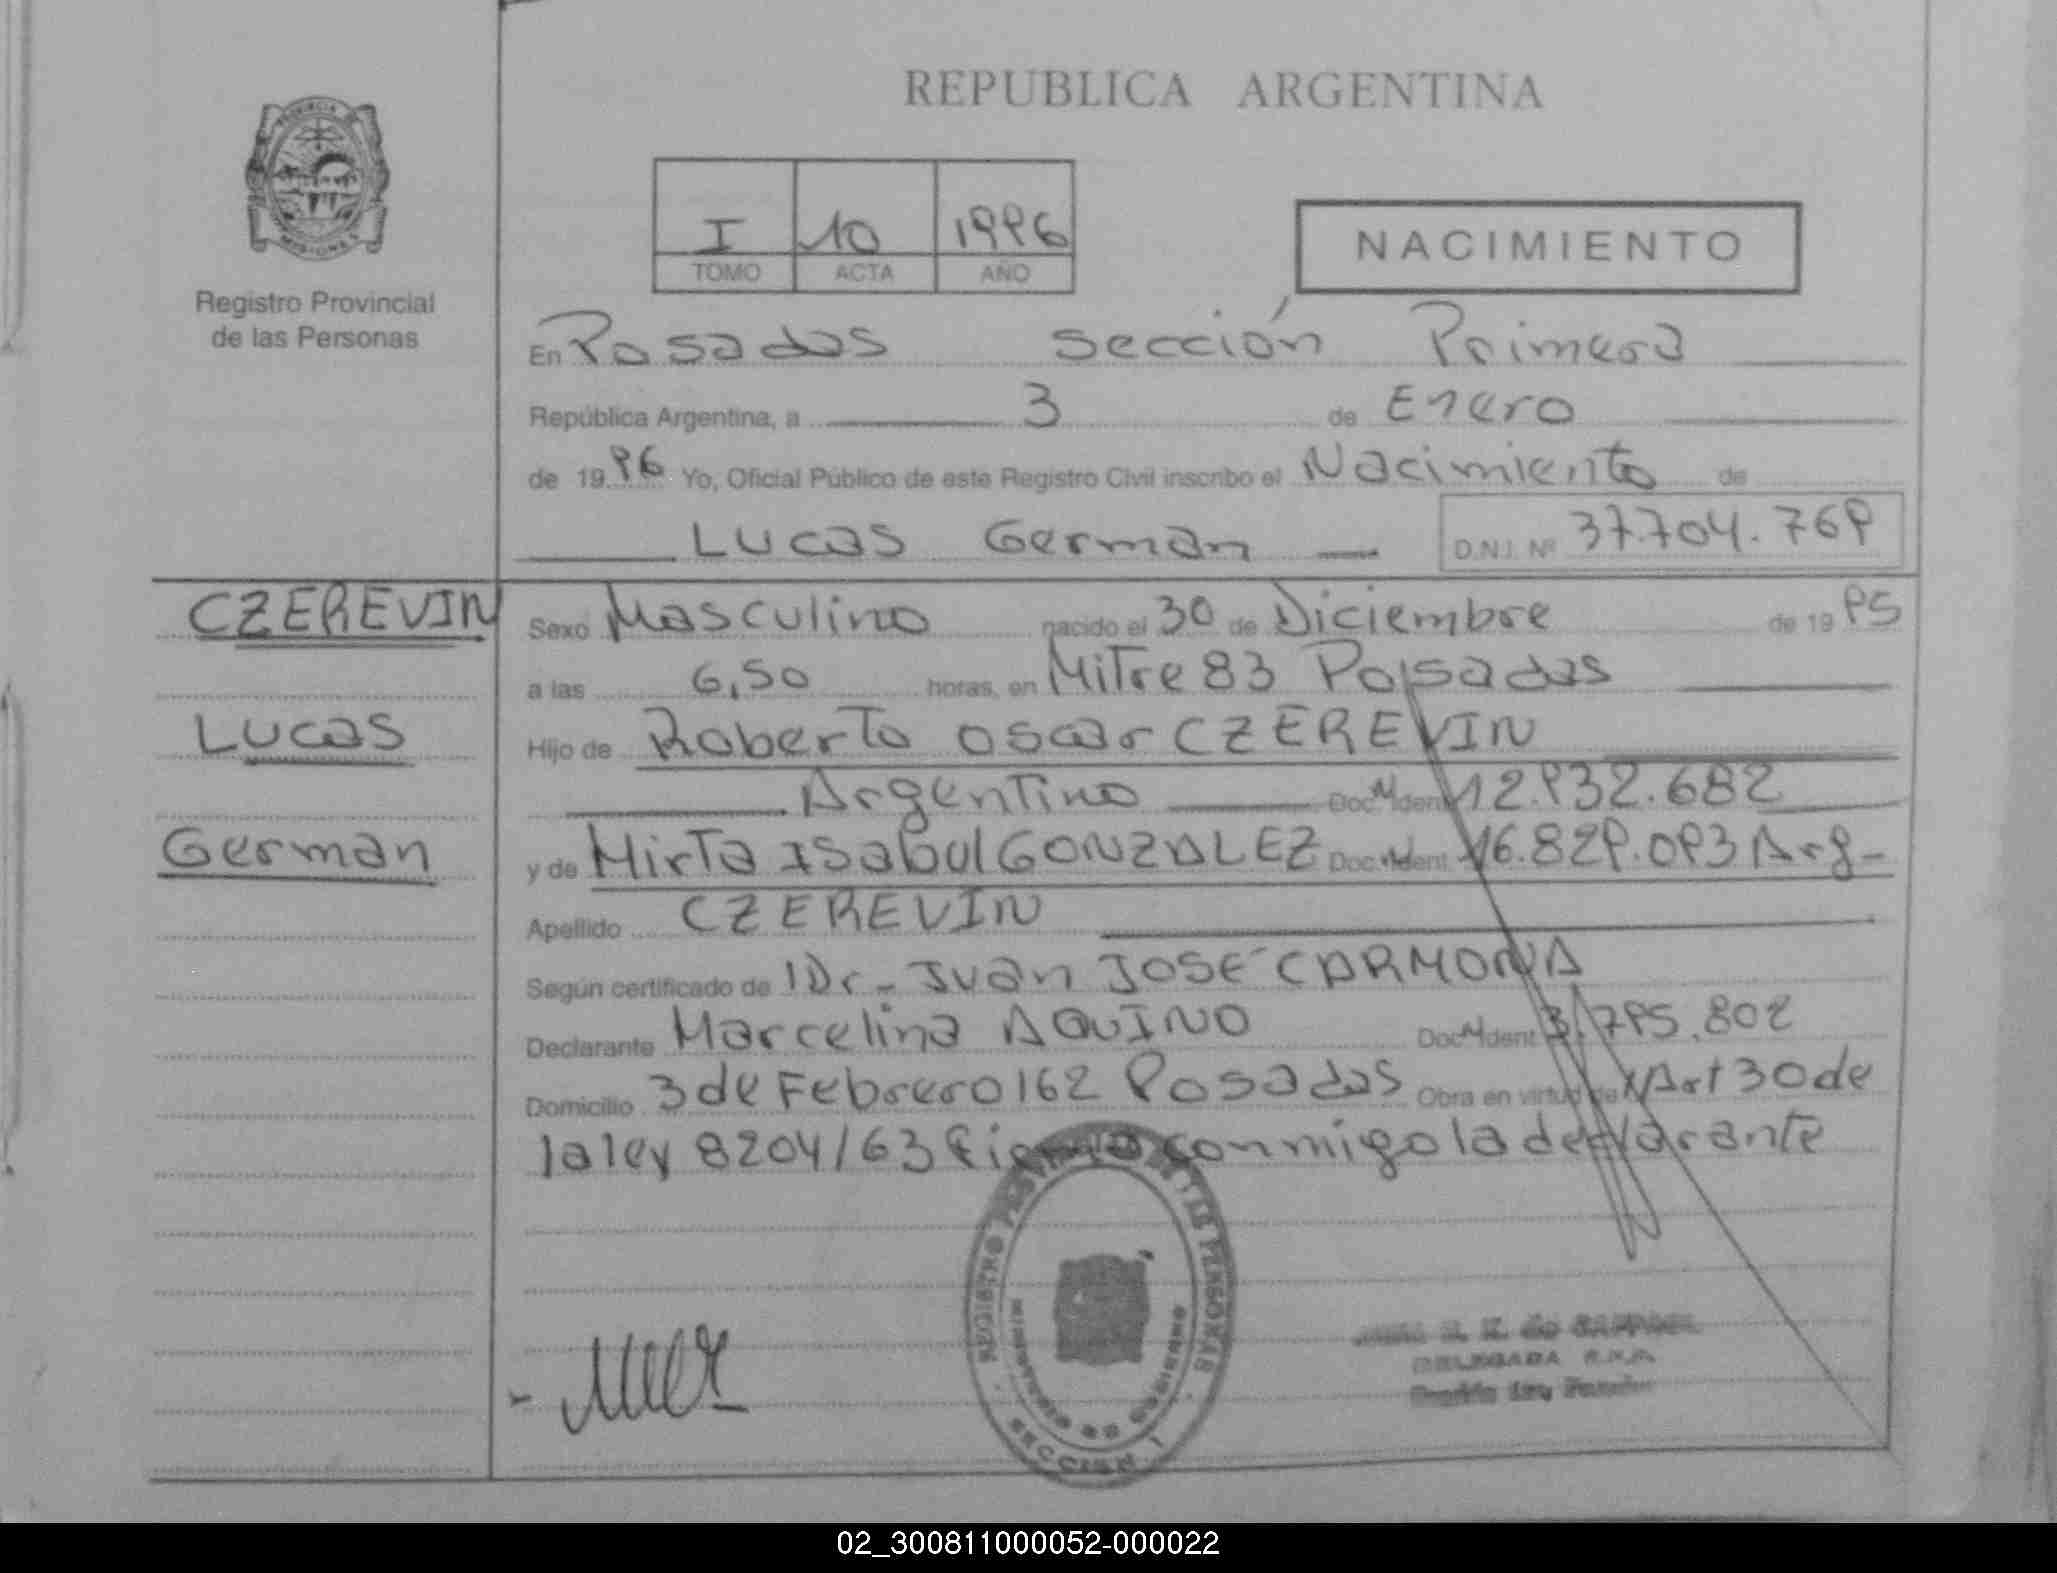 REPUBLICA ARGENTINA
PROVINCIA DE
MISIONES
Registro Provincial
de las Personas
I 10 1996
TOMO ACTA AÑO
NACIMIENTO
En Posadas sección Primera
República Argentina, a 3 de Enero
de 1996 Yo, Oficial Público de este Registro Civil inscribo el Nacimiento de
Lucas German D.N.I. Nº 37.704.769
CZEREVIN
Lucas
German
Sexo Masculino nacido el 30 de Diciembre de 1995
a las 6,50 horas, en Mitre 83 Posadas
Hijo de Roberto Oscar CZEREVIN
Argentino Doc. N Ident 12.932.682
y de Mirta Isabel GONZALEZ Doc. N Ident 16.829.093 Arg-
Apellido CZEREVIN
Según certificado de Dr- Juan JOSÉ CARMONA
Declarante Marcelina AQUINO Doc N Ident 3.795.802
Domicilio 3 de Febrero 162 Posadas Obra en virtud de Art 30 de
la ley 8204/63 Firma conmigo la declarante
REGISTRO PROVINCIAL DE LAS PERSONAS
MINISTERIO DE GOBIERNO
SECCION 1
DELEGADA R.P.P.
02_300811000052-000022